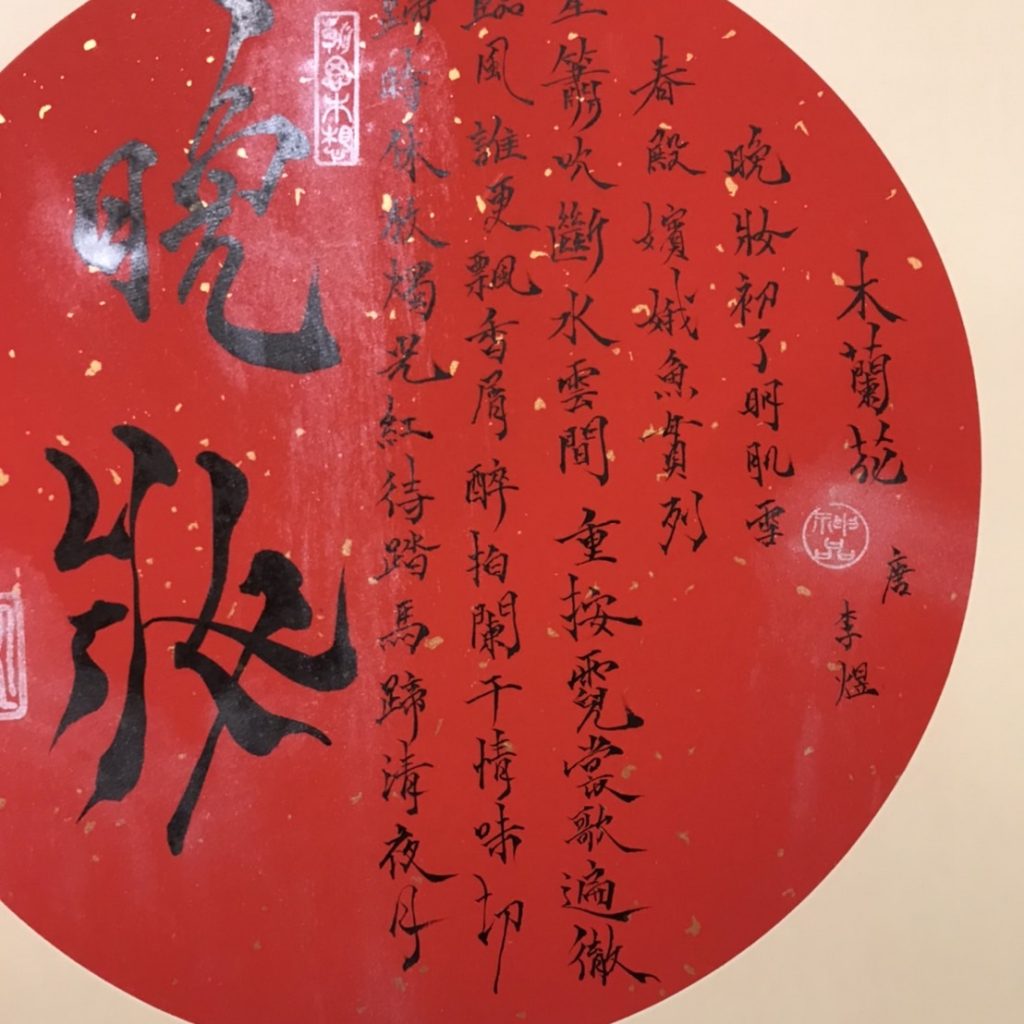 木蘭花
唐
李煜
晚妝初了明肌雪
春殿嬪娥魚貫列
笙簫吹斷水雲間 重按霓裳歌遍徹
臨風誰更飄香屑醉拍闌干情味切
歸時休放燭光紅待踏馬蹄清夜月
晚妝